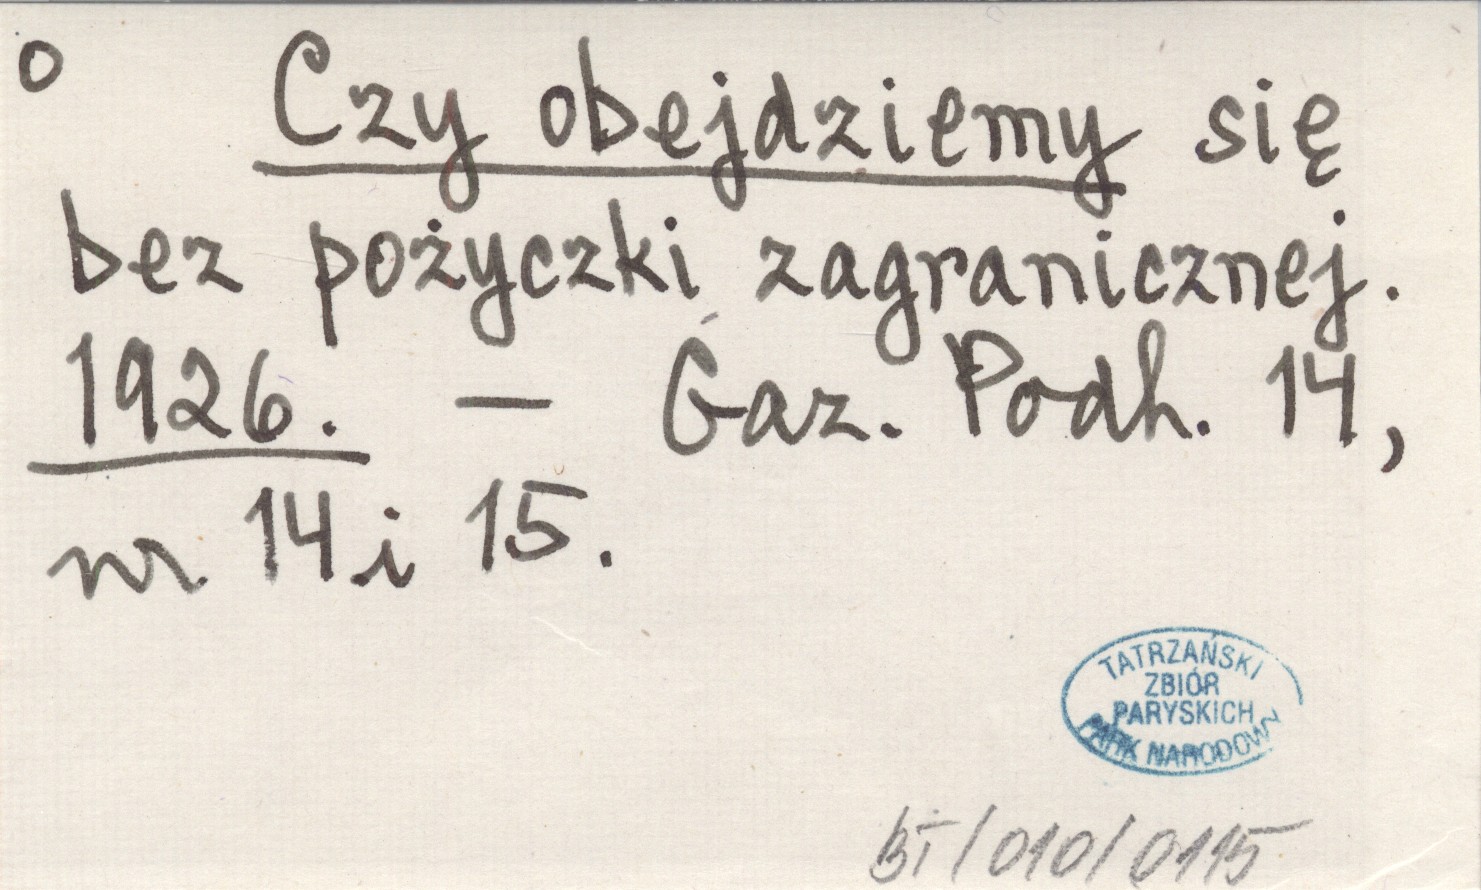 o Czy obejdziemy się
bez pożyczki zagranicznej.
1926. — Gaz. Podh. 14,
nr 14 i 15.
TATRZAŃSKI
ZBIÓR
PARYSKICH
PARK NARODOWY
BT/010/0115